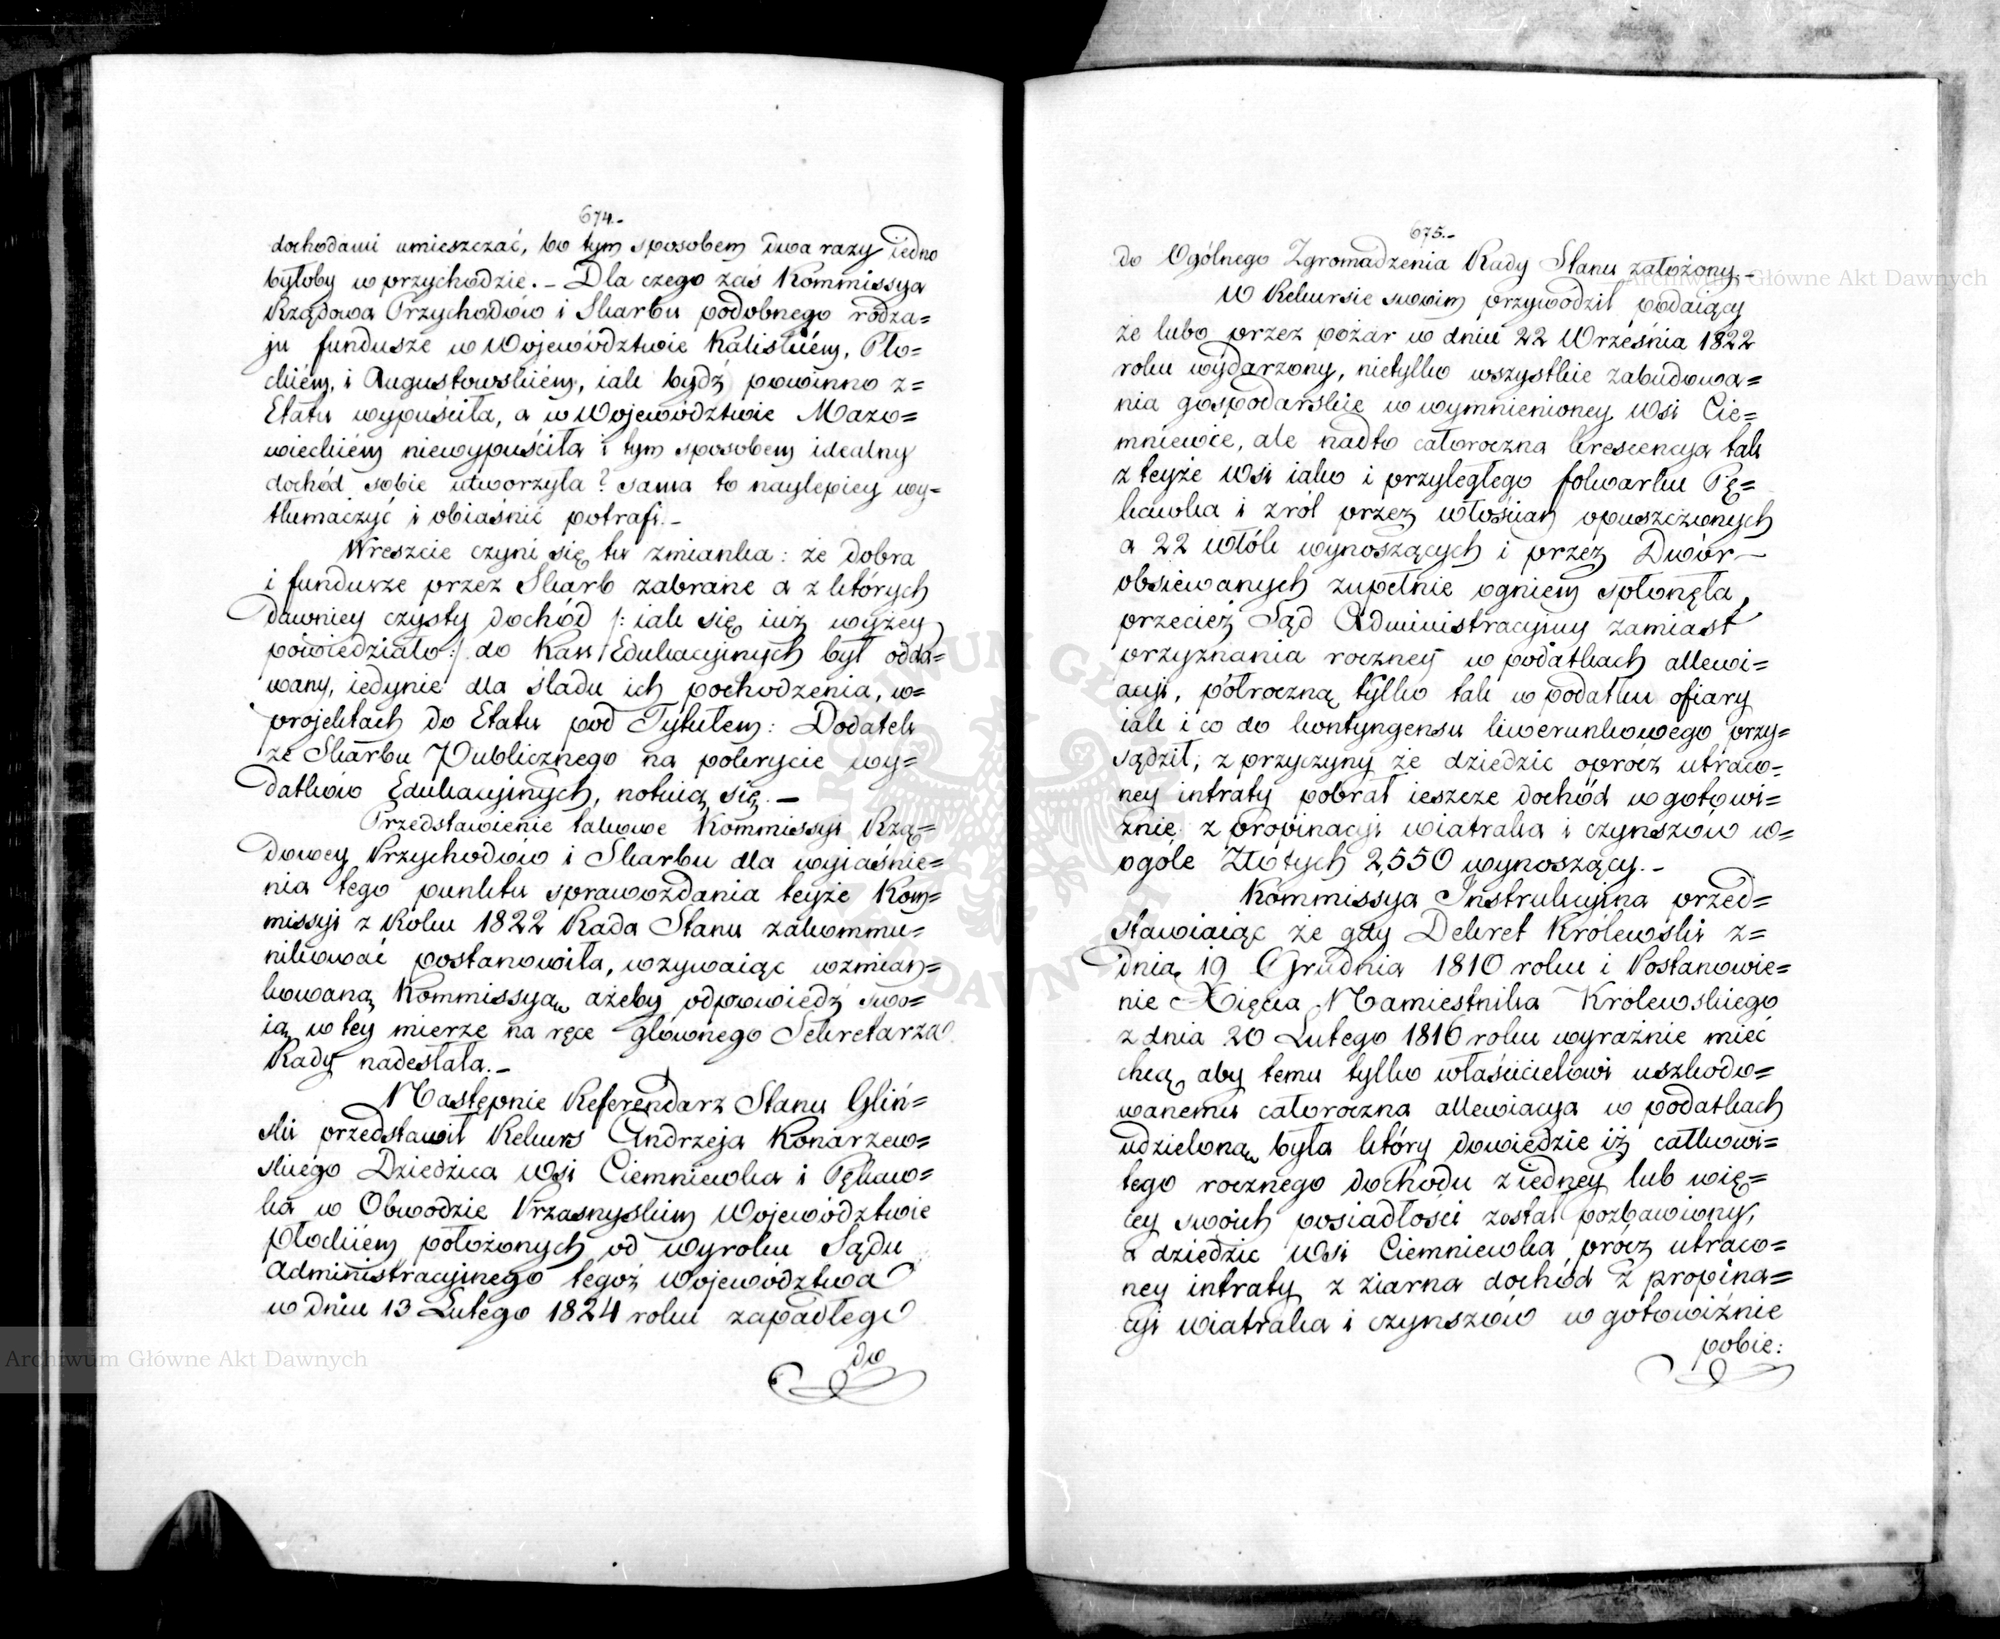 674.-
dochodami umieszczać, bo tym sposobem dwa razy iedno
byłoby w przychodzie. - Dla czego zaś Kommissya
Rządowa Przychodów i Skarbu podobnego rodza=
ju fundusze w Województwie Kaliskiém, Pło=
ckiém, i Augustowskiém, iak bydź powinno z=
Etatu wypuściła, a w Województwie Mazo=
wieckiém niewypuściła i tym sposobem idealny
dochód sobie utworzyła? sama to naylepiey wy=
tłumaczyć i obiaśnić potrafi. -
Wreszcie czyni się tu zmianka: że dobra
i fundusze przez Skarb zabrane a z których
dawniey czysty dochód /: iak się iuż wyżey
powiedziało :/ do Kass Edukacyinych był odda=
wany, iedynie dla śladu ich pochodzenia, w=
projektach do Etatu pod Tytułem: Dodatek
ze Skarbu Publicznego na pokrycie wy=
datków Edukacyinych, notuią się. -
Przedstawienie takowe Kommissyi Rzą=
dowey Przychodów i Skarbu dla wyiaśnie=
nia tego punktu sprawozdania teyże Kom=
missyi z Roku 1822 Rada Stanu zakommu=
nikować postanowiła, wzywaiąc wzmian=
kowaną Kommissyą, ażeby odpowiedź swo=
ią w tey mierze na ręce głównego Sekretarza
Rady nadesłała. -
Następnie Referendarz Stanu Gliń=
ski przedstawił Rekurs Andrzeja Konarzew=
skiego Dziedzica Wsi Ciemniewka i Pękaw=
ka w Obwodzie Przasnyskim Województwie
Płockiém położonych od wyroku Sądu
Administracyinego tegoż Województwa
w dniu 13 Lutego 1824 roku zapadłego
do
675.-
do Ogólnego Zgromadzenia Rady Stanu założony. -
W Rekursie swoim przywodził podaiący
że lubo przez pożar w dniu 22 Września 1822
roku wydarzony, nietylko wszystkie zabudowa=
nia gospodarskie w wymnienioney Wsi Cie=
mniewce, ale nadto całoroczna krescencya tak
z teyże Wsi iako i przyległego folwarku Pę=
kawka i z ról przez włościan opuszczonych
a 22 włók wynoszących i przez Dwór -
obsiewanych zupełnie ogniem spłonęła,
przecież Sąd Administracyiny zamiast
przyznania roczney w podatkach allewi=
acyi, półroczną tylko tak w podatku ofiary
iak i co do kontyngensu liwerunkowego przy=
sądził, z przyczyny że dziedzic oprócz utraco=
ney intraty pobrał ieszcze dochód w gotowi=
znie z propinacyi wiatraka i czynszów w=
ogóle Złotych 2,550 wynoszący. -
Kommissya Instrukcyina przed=
stawiaiąc że gdy Dekret Królewski z=
dnia 19 Grudnia 1810 roku i Postanowie=
nie Xięcia Namiestnika Królewskiego
z dnia 20 Lutego 1816 roku wyraźnie mieć
chcą, aby temu tylko właścicielowi uszkodo=
wanemu całoroczna allewiacya w podatkach
udzieloną była który dowiedzie iż całkowi=
tego rocznego dochodu z iedney lub wię=
cey swoich posiadłości został pozbawiony,
a dziedzic Wsi Ciemniewka, prócz utraco=
ney intraty z ziarna dochód z propina=
cyi wiatraka i czynszów w gotowiźnie
pobie:
Archiwum Główne Akt Dawnych
Archiwum Główne Akt Dawnych
ARCHIWUM GŁÓWNE AKT DAWNYCH